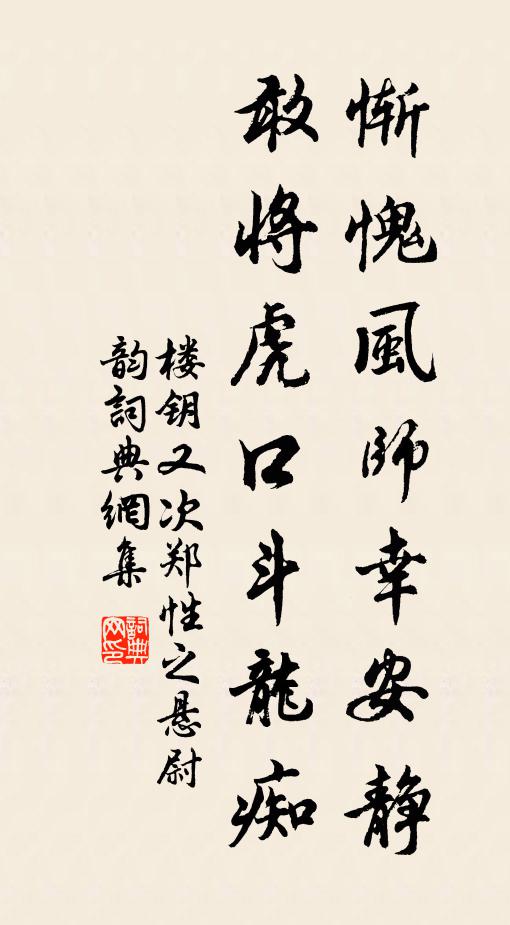 慚愧風師幸安静
敢將虎口斗龍痴
楼钥又次郑性之悬尉
韵詞典網集
詞典网印